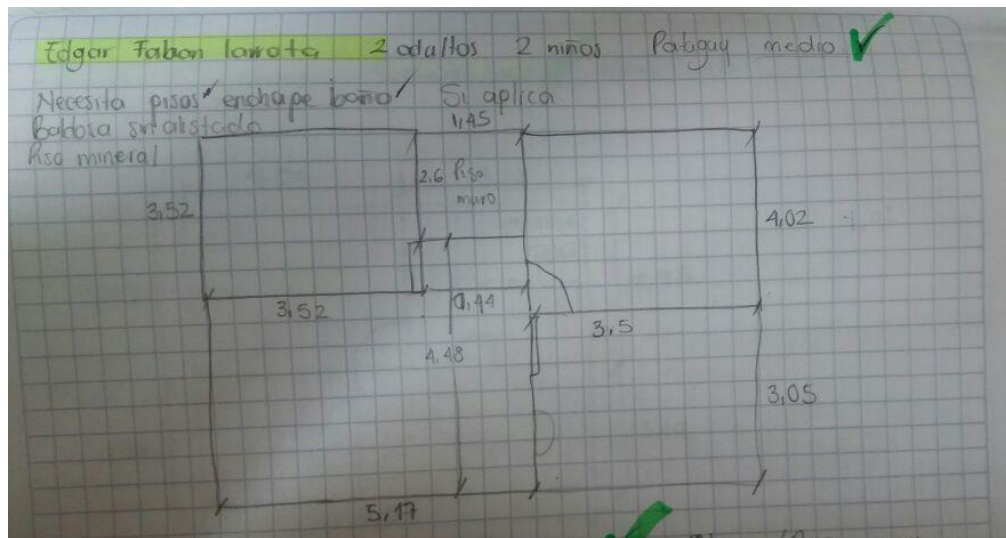 Edgar Fabian 2 adultos 2 niños Patiguy medio
Necesita pisos enchape baño Si aplica
Baldosa
Piso mineral
1,45
2.6 Piso
muro
3,52
4,02
3,52
0,44
3,5
4,48
3,05
5,17